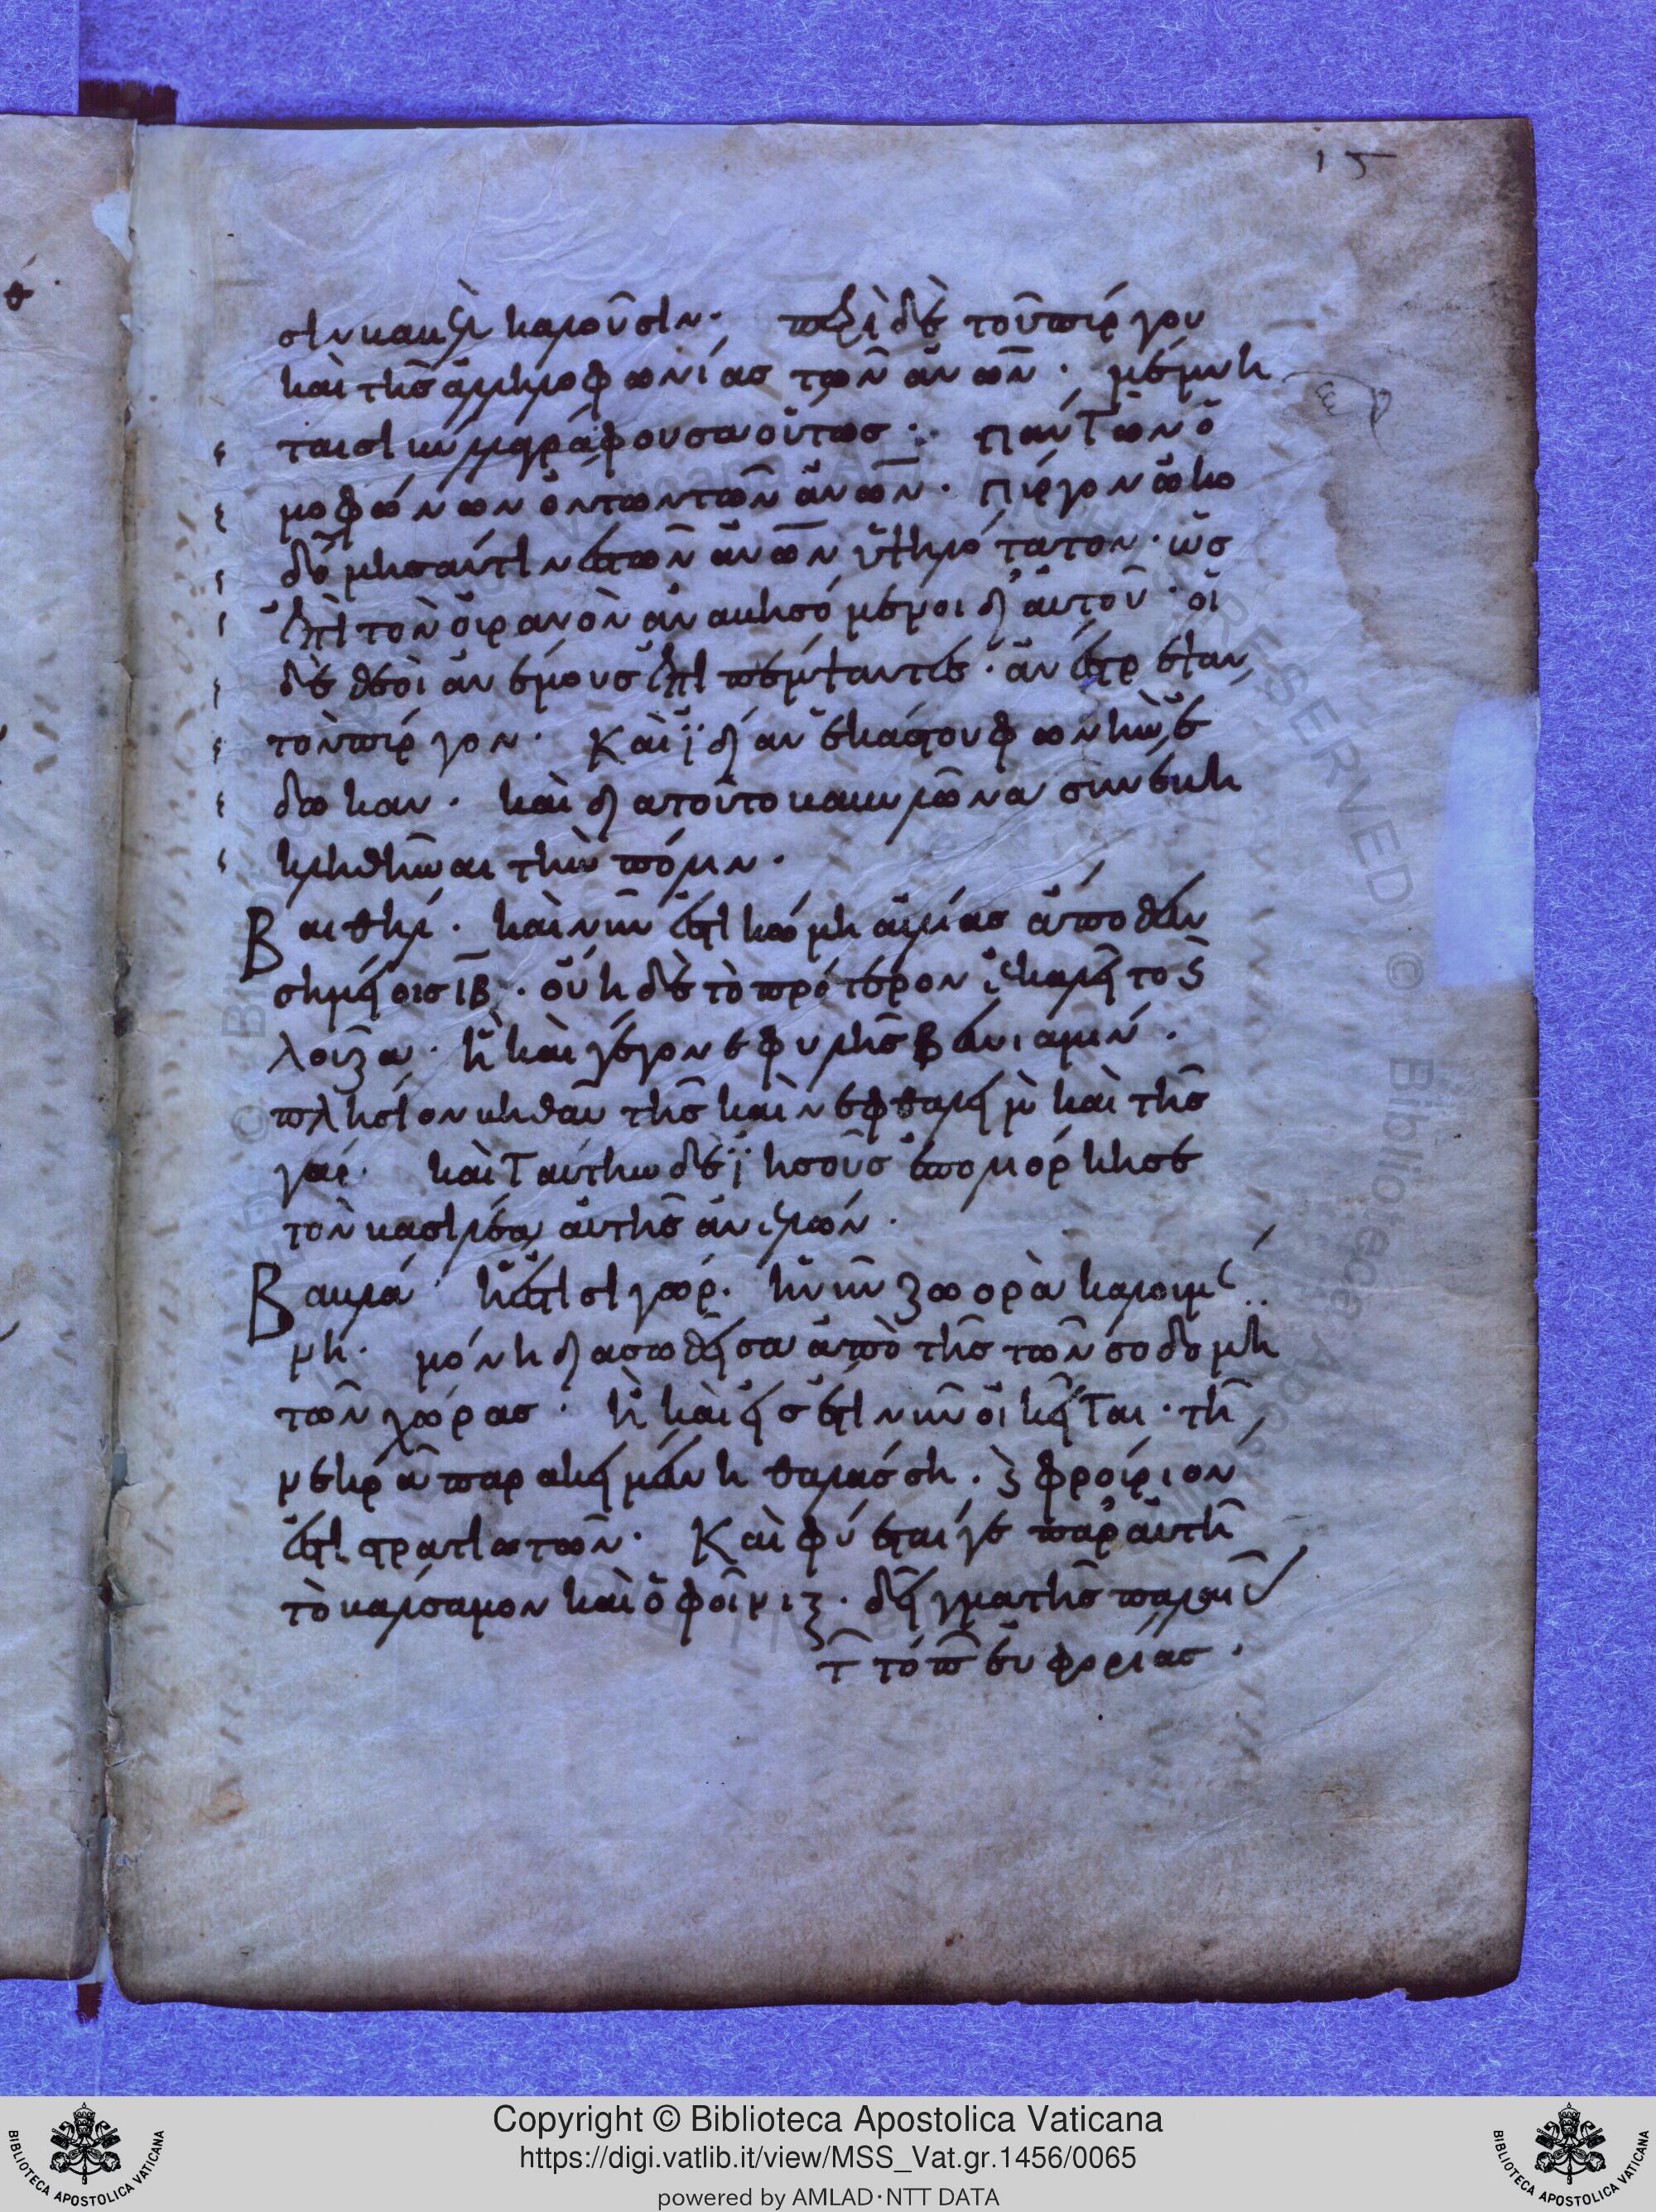 15
σιν βαβὲλ καλοῦσιν. περὶ δὲ τοῦ πύργου
καὶ τῆς ἀλληλοφωνίας τῶν ἀνων. μέμνη
ται σίβυλλα γράφουσα οὕτως. παντων ὁ
μοφώνων ὄντων τῶν ἀνων. πύργον ὠκο
δόμησάν τινες τῶν ἀνων ὑψηλότατον. ὡς
ἐπὶ τὸν οὐρανὸν ἀναβησόμενοι δι' αὐτοῦ. οἱ
δὲ θεοὶ ἀνέμους ἐπιπέμψαντες. ἀνέτρεψαν
τὸν πύργον. καὶ ἰδίαν ἑκάστου φωνὴν ἔ
δωκαν. καὶ διατοῦτο βαβυλῶνα συνέβη
κληθῆναι τὴν πόλιν.
Βαιθήλ. καὶ νῦν ἐστὶ κώμη αἰλίας ἄποθεν
σημείοις ιβ. οὕκη δὲ τὸ πρότερον ἐκαλεῖτο καὶ
λουζα. ἣ καὶ γέγονε φυλῆς βενιαμίν.
πλησίον βηθαῦ τῆς καὶ νεφθαλεὶμ καὶ τῆς
γαί. καὶ ταύτην δὲ ἰησοῦς ἐπολιόρκησε
τὸν βασιλέα αὐτῆς ἀνελών.
Βαλά. ἥ ἐστι σιγώρ. ἡ νῦν ζοορὰ καλουμέ
νη. μόνη διασωθεῖσα ἀπὸ τῆς τῶν σοδομη
τῶν χώρας. ἣ καὶ εἰσέτι νῦν οἰκεῖται. τῆ
νεκρᾶ παρακειμένη θαλάσση. καὶ φρούριον
ἐστι στρατιωτῶν. καὶ φύεται γε παρ' αὐτῆ
τὸ βάλσαμον καὶ ὁ φοῖνιξ. δεῖγμα τῆς παλαιᾶς
τῶν τόπων εὐφορίας.
Copyright © Biblioteca Apostolica Vaticana
https://digi.vatlib.it/view/MSS_Vat.gr.1456/0065
powered by AMLAD·NTT DATA
BIBLIOTECA APOSTOLICA VATICANA
BIBLIOTECA APOSTOLICA VATICANA